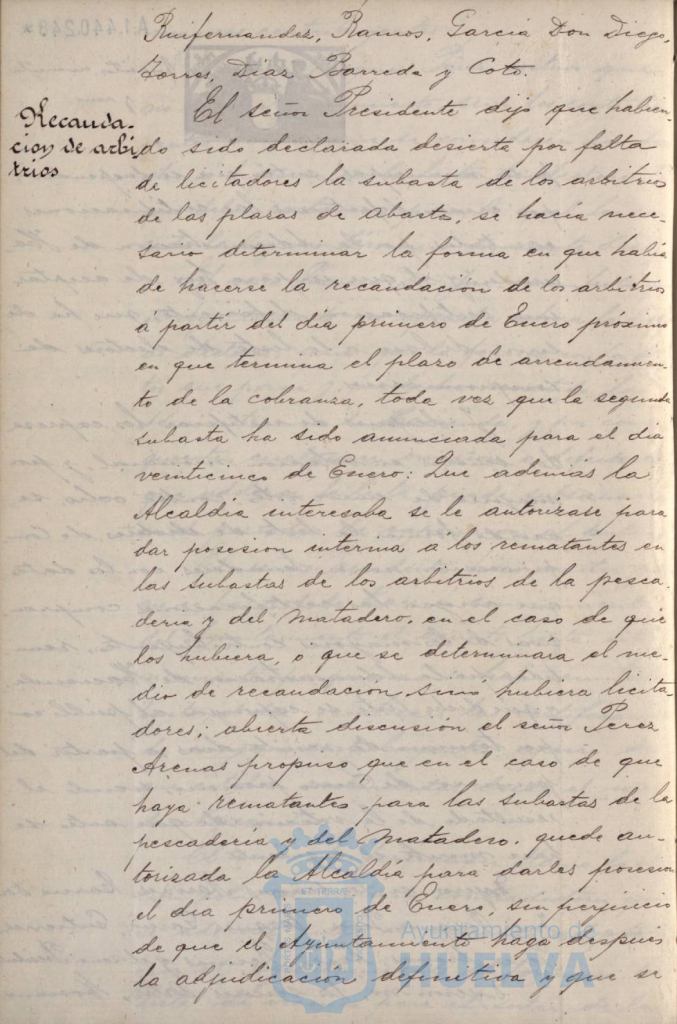 Ruifernandez, Ramos, Garcia Don Diego,
Torres, Diaz Barreda y Coto.
Recauda-
cion de arbi-
trios
El señor Presidente dijo que habien-
do sido declarada desierta por falta
de licitadores la subasta de los arbitrios
de las plazas de abasto, se hacia nece-
sario determinar la forma en que habia
de hacerse la recaudación de los arbitrios
á partir del dia primero de Enero próximo
en que termina el plazo de arrendamien-
to de la cobranza, toda vez que la segunda
subasta ha sido anunciada para el dia
veinticinco de Enero: Que además la
Alcaldia interesaba se le autorizase para
dar posesion interina á los rematantes en
las subastas de los arbitrios de la pesca-
deria y del Matadero, en el caso de que
los hubiera, ó que se determinára el me-
dio de recaudación sinó hubiera licita-
dores; abierta discusión el señor Perez
Arenas propuso que en el caso de que
haya rematantes para las subastas de la
pescadería y del Matadero, quede au-
torizada la Alcaldía para darles posesion
el dia primero de Enero, sin perjuicio
de que el Ayuntamiento haga después
la adjudicación definitiva y que se
Ayuntamiento de
HUELVA